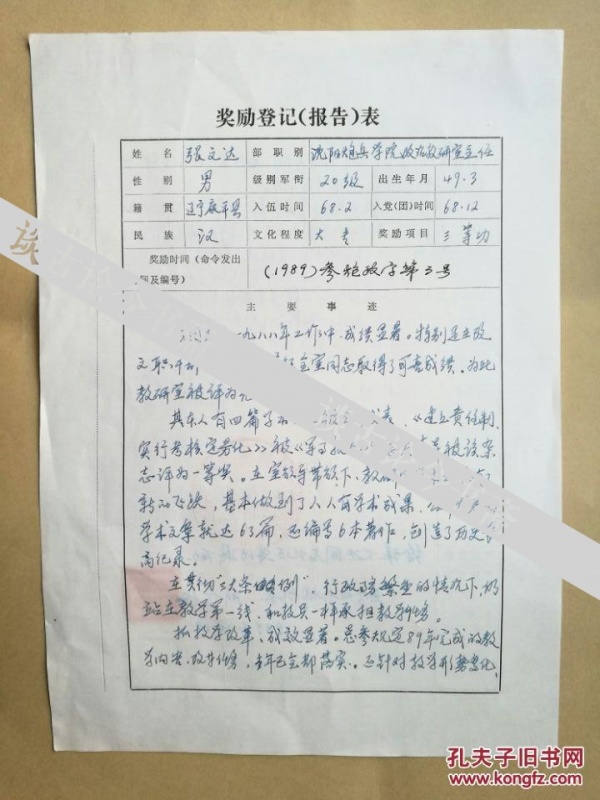 奖励登记(报告)表
姓名 张文达 部职别 沈阳炮兵学院政治教研室主任
性别 男 级别军衔 20级 出生年月 49.3
籍贯 辽宁康平县 入伍时间 68.2 入党(团)时间 68.12
民族 汉 文化程度 大专 奖励项目 三等功
奖励时间(命令发出
及编号) (1989)参炮政字第3号
主要事迹
一九八八年工作中,成绩显著。特别是在院
文职 全室同志取得了可喜成绩。为此
教研室被评为
其本人有四篇 《建立责任制,
实行考核定量化》被《 被该杂
志评为一等奖。在室领导带领下,教
新的飞跃,基本做到了人人有学术成果,
学术文章就达63篇,还编写6本著作,创造了历史
高纪录。
在贯彻"三大条例",行政 繁 的情况下,仍
站在教学第一线,和教员一样承担教学任务。
抓教学改革,成效显著。总参规定89年完成的教
学内容、改革任务,去年已全部落实。还针对教学形势变化,
孔夫子旧书网
www.kongfz.com